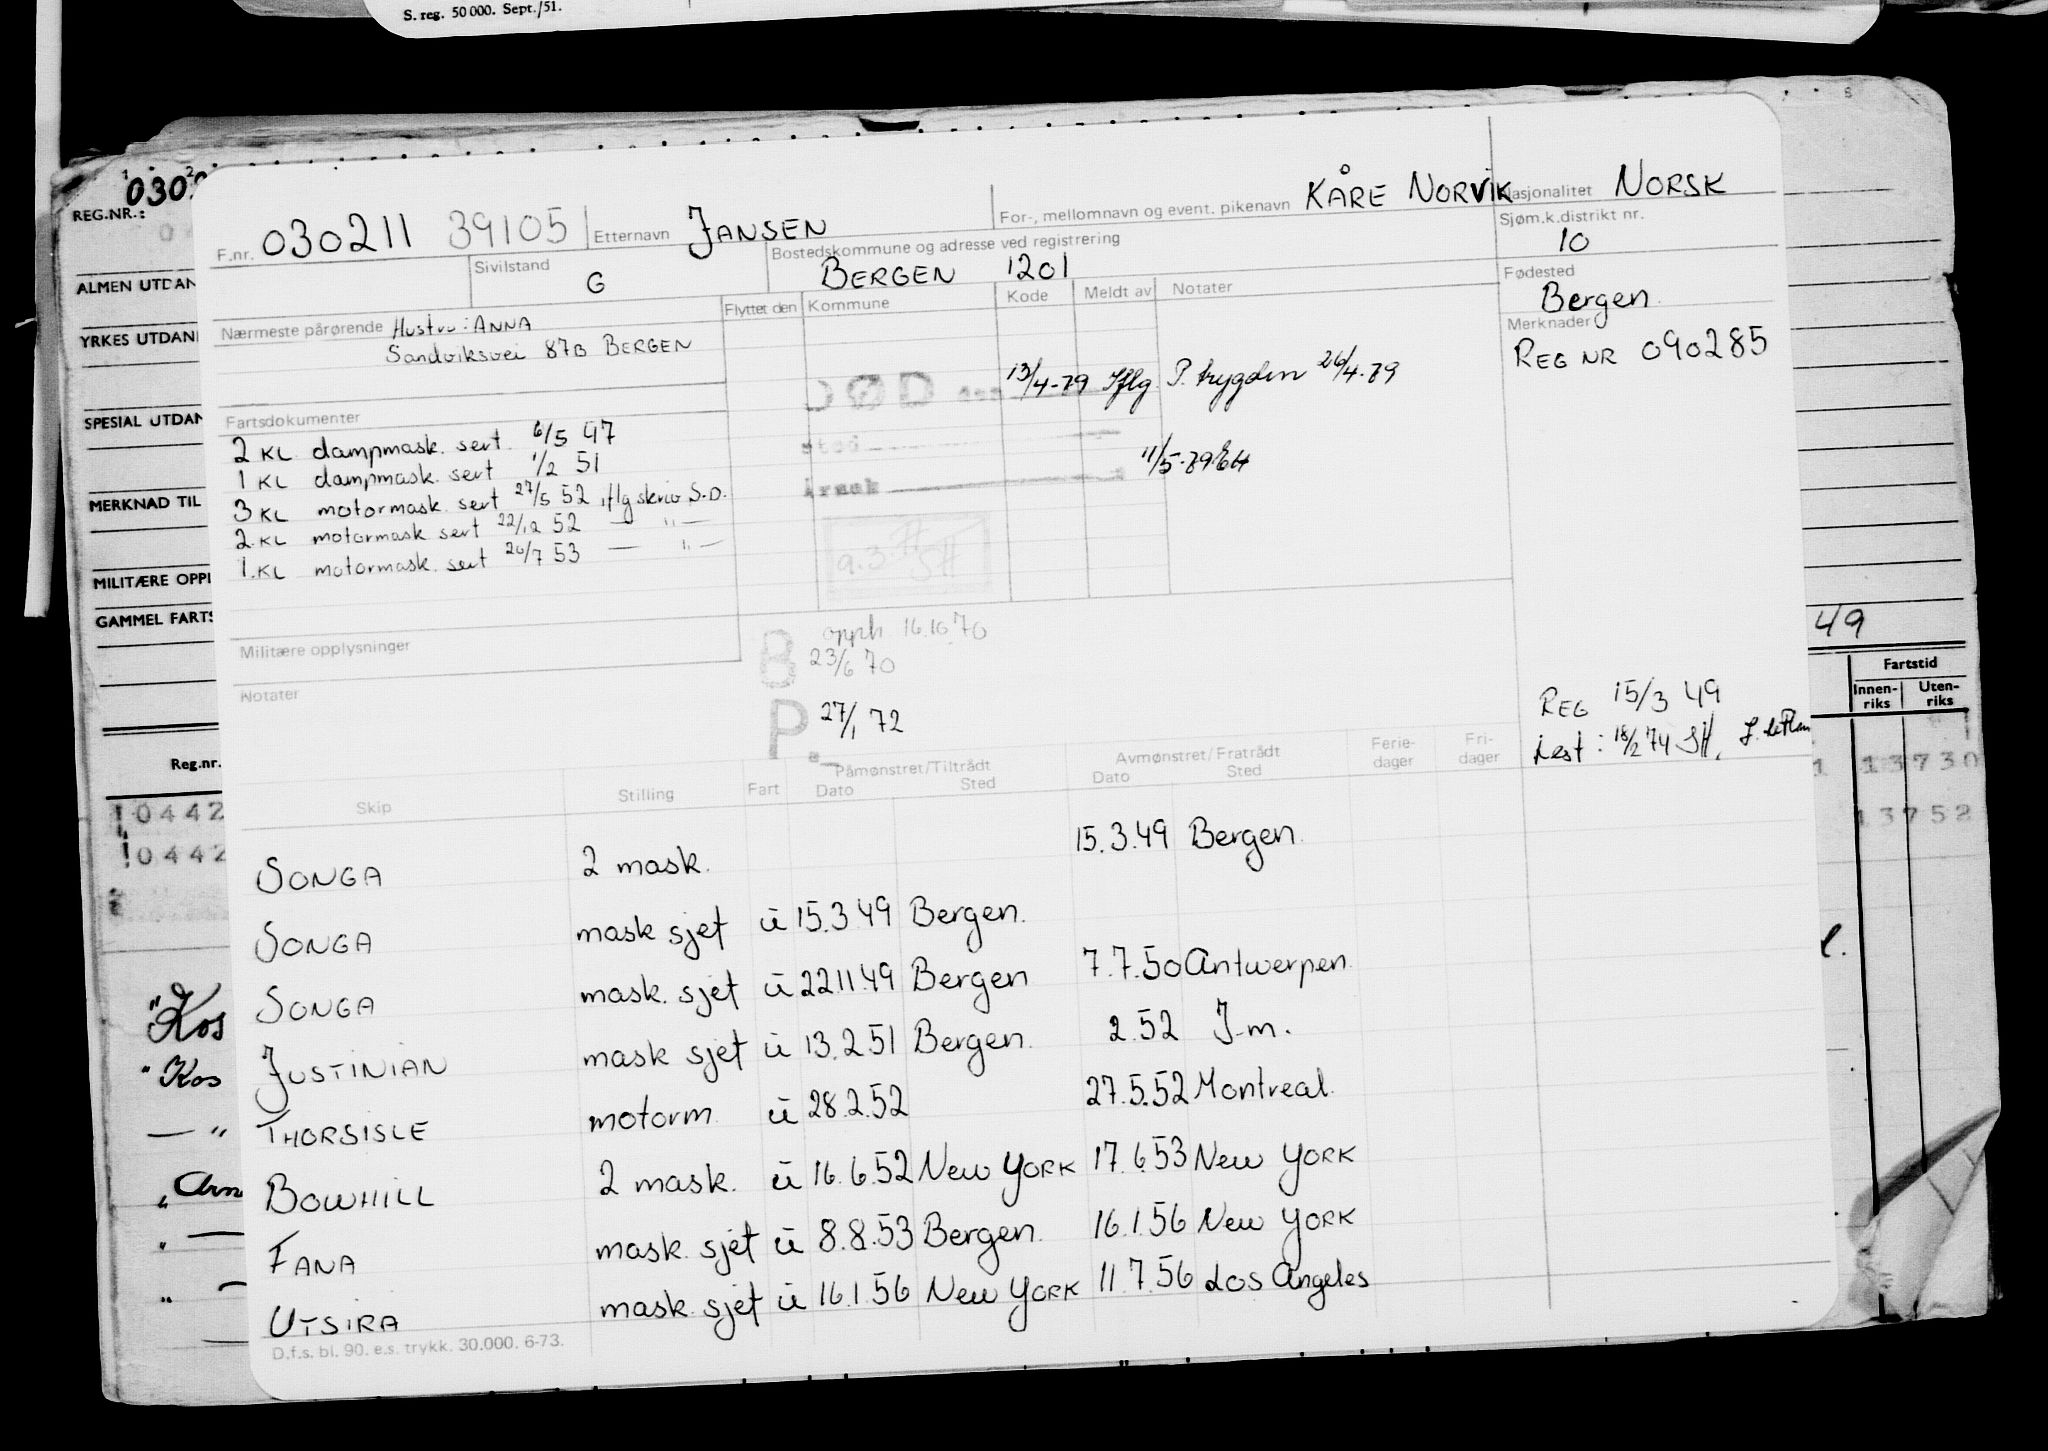 S. reg. 50 000. Sept./51.
REG.NR.:
F.nr. 030211 39105 Etternavn JANSEN For-, mellomnavn og event. pikenavn KÅRE NORVIK Nasjonalitet NORSK
Sjøm.k.distrikt nr. 10
Sivilstand G Bostedskommune og adresse ved registrering BERGEN 1201
Fødested Bergen
Nærmeste pårørende Hustru: ANNA
Sandviksvei 87B BERGEN
Flyttet den Kommune Kode Meldt av Notater
Merknader REG NR 090285
DØD 13/4-79 Iflg. P. trygden 26/4-79
sted
Årsak 11/5-79
Fartsdokumenter
2 KL dampmask. sert. 6/5 47
1 KL dampmask. sert 1/2 51
3 KL motormask. sert 27/5 52 iflg skriv S.D.
2. KL motormask sert 22/12 52 — " —
1. KL motormask. sert 20/7 53 — " —
Militære opplysninger
Notater
B opph 16.10.70
23/6 70
P. 27/1 72
REG 15/3 49
Lest: 18/2 74 SH,
ALMEN UTDAN
YRKES UTDAN
SPESIAL UTDAN
MERKNAD TIL
MILITÆRE OPPL
GAMMEL FARTS
Reg.nr.
!0442
!0442
"Kos
" Kos
— "
49
Fartstid
Innen-riks Uten-riks
1 13730
13752
Skip Stilling Fart Påmønstret/Tiltrådt Dato Sted Avmønstret/Fratrådt Dato Sted Ferie-dager Fri-dager
SONGA 2 mask. 15.3.49 Bergen.
SONGA mask sjef u 15.3 49 Bergen.
SONGA mask. sjef u 22.11.49 Bergen 7.7.50 Antwerpen.
JUSTINIAN mask sjef u 13.2.51 Bergen. 2.52 J.m.
THORSISLE motorm. u 28.2.52 27.5.52 Montreal.
BOWHILL 2 mask. u 16.6.52 New YORK 17.6.53 New YORK
FANA mask. sjef u 8.8.53 Bergen. 16.1.56 New YORK
UTSIRA mask. sjef u 16.1.56 New YORK 11.7.56 Los Angeles
D.f.s. bl. 90. e.s. trykk. 30.000. 6-73.